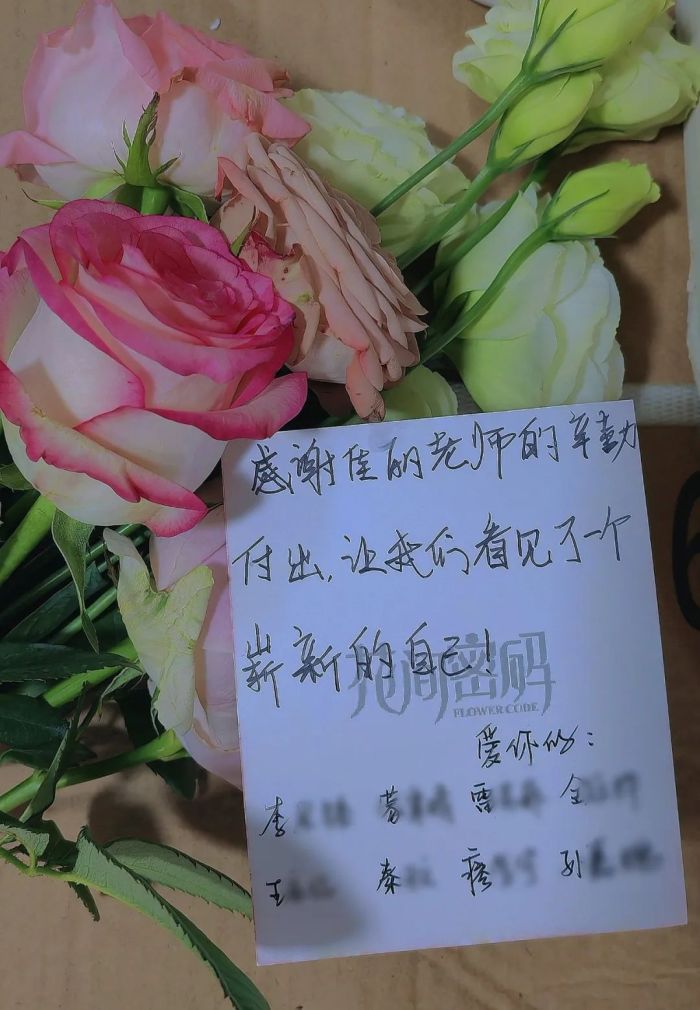 感谢佳丽老师的辛勤
付出,让我们看见了一个
崭新的自己!
花间密码
FLOWER CODE
爱你的:
李 雷 全
王 秦 孙